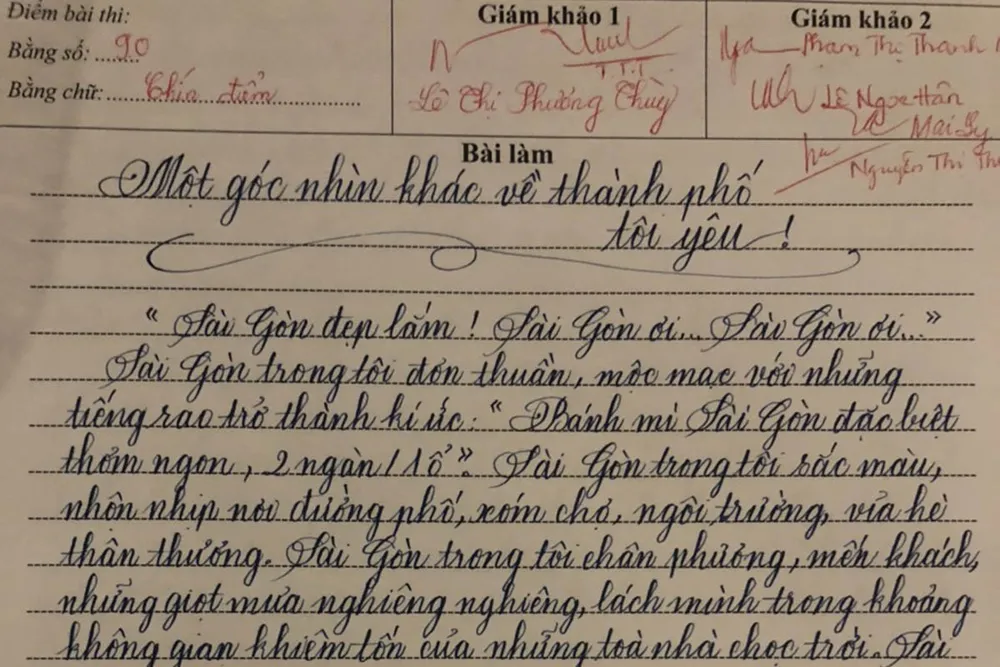 Điểm bài thi:
Bằng số: 90
Bằng chữ: Chín điểm
Giám khảo 1
T.T.T
Lê Thị Phương Thùy
Giám khảo 2
Nga Phạm Thị Thanh
Lê Ngọc Hân
Mai Ly
Nguyễn Thị
Bài làm
Một góc nhìn khác về thành phố
tôi yêu!
“ Sài Gòn đẹp lắm ! Sài Gòn ơi... Sài Gòn ơi...”
Sài Gòn trong tôi đơn thuần, mộc mạc với những
tiếng rao trở thành kí ức: “ Bánh mì Sài Gòn đặc biệt
thơm ngon, 2 ngàn / 1 ổ”. Sài Gòn trong tôi sắc màu,
nhộn nhịp nơi đường phố, xóm chợ, ngôi trường, vỉa hè
thân thương. Sài Gòn trong tôi chân phương, mến khách,
những giọt mưa nghiêng nghiêng, lách mình trong khoảng
không gian khiêm tốn của những toà nhà chọc trời. Sài